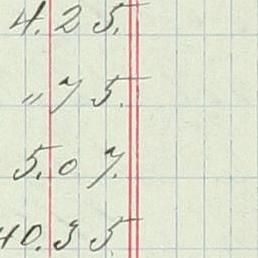 4.25.
" 75.
5.07.
40.35